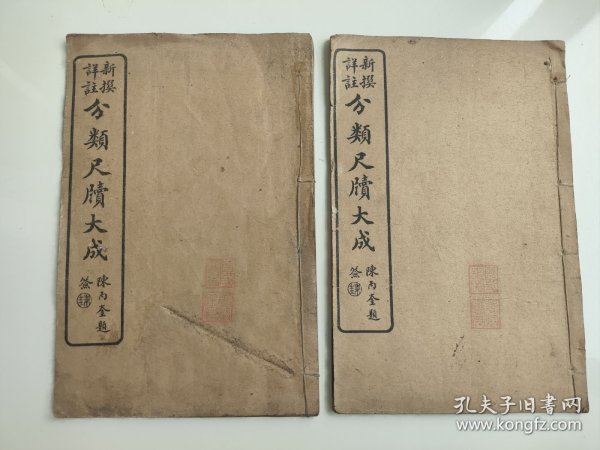 新撰
詳註
分類尺牘大成
陳丙奎題
签
新撰
詳註
分類尺牘大成
陳丙奎題
签
孔夫子旧书网
www.kongfz.com